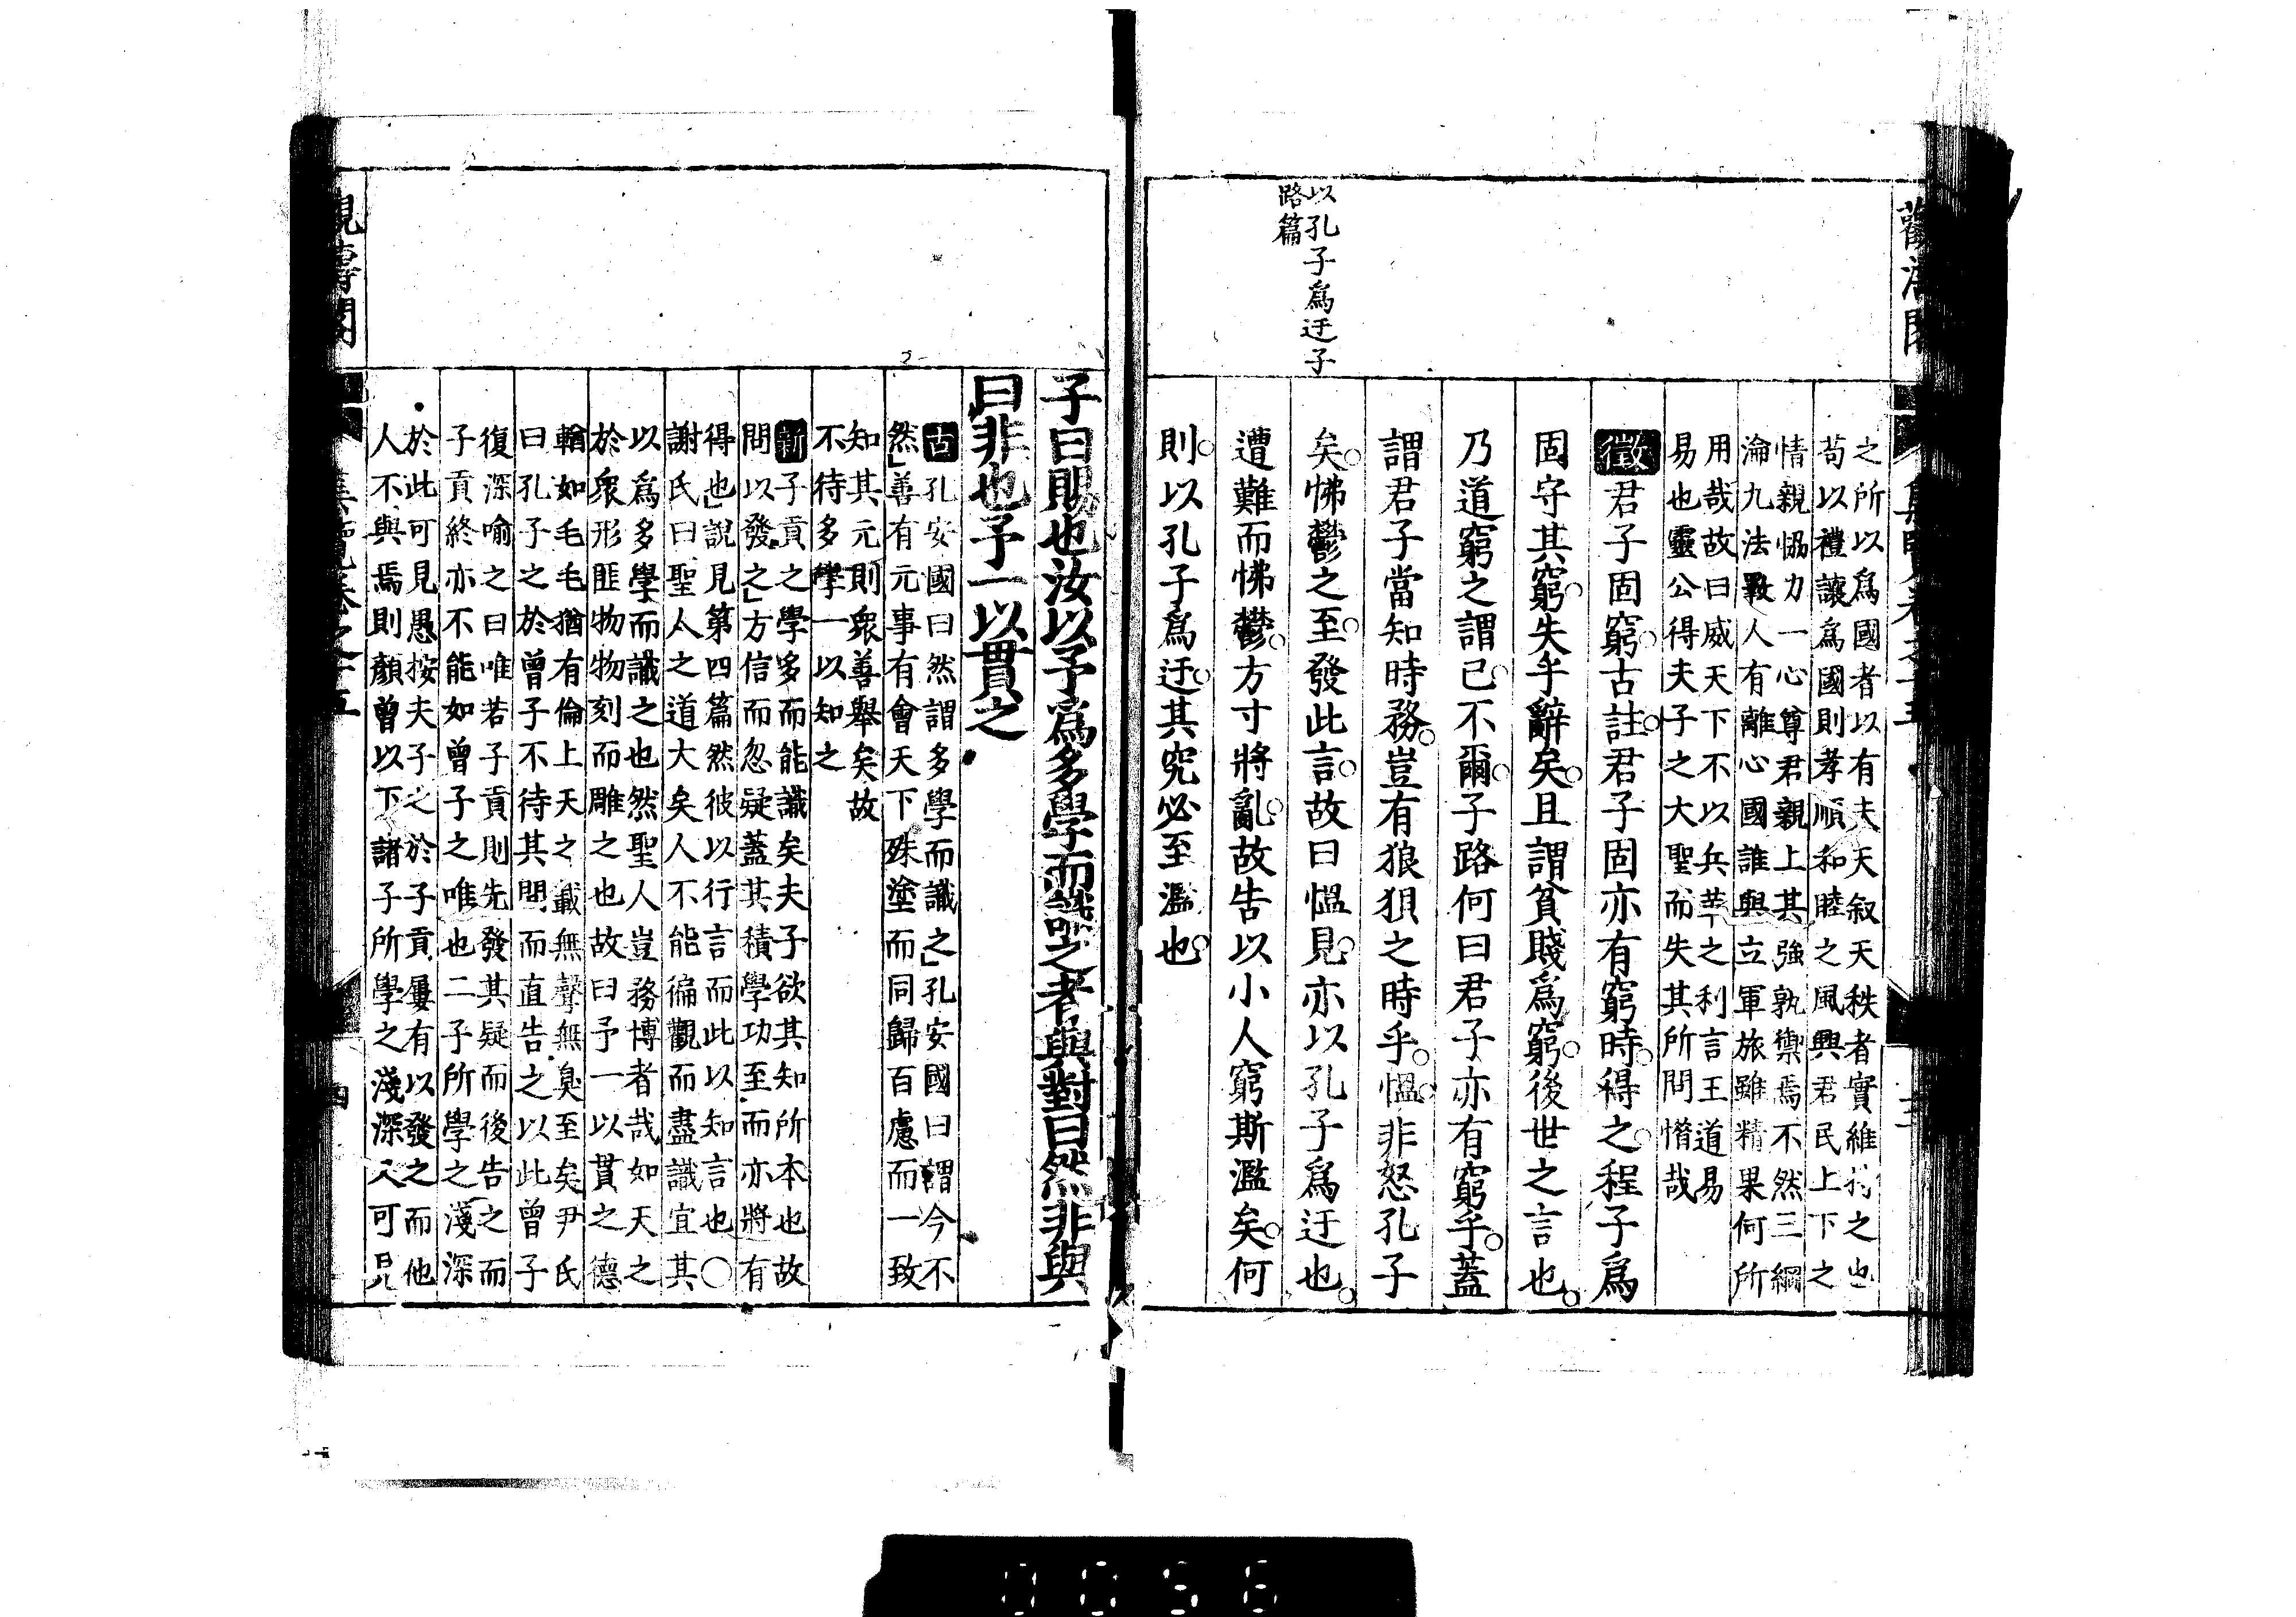 以孔子爲迂子
路篇
之所以爲國者以有夫天叙天秩者實維持之也
苟以禮讓爲國則孝順和睦之風興君民上下之
情親恊力一心尊君親上其強孰禦焉不然三綱
淪九法斁人有離心國誰與立軍旅雖精果何所
用哉故曰威天下不以兵革之利言王道易
易也靈公得夫子之大聖而失其所問惜哉
徵君子固窮古註君子固亦有窮時得之程子爲
固守其窮失乎辭矣且謂貧賤爲窮後世之言也
乃道窮之謂已不爾子路何曰君子亦有窮乎蓋
謂君子當知時務豈有狼狽之時乎慍非怒孔子
矣怫鬱之至發此言故曰慍見亦以孔子爲迂也
遭難而怫鬱方寸將亂故告以小人窮斯濫矣何
則以孔子爲迂其究必至濫也
子曰賜也汝以予爲多學而識之者與對曰然非與
曰非也予一以貫之
古孔安國曰然謂多學而識之孔安國曰謂今不
然善有元事有會天下殊塗而同歸百慮而一致
知其元則衆善舉矣故
不待多學一以知之
新子貢之學多而能識矣夫子欲其知所本也故
問以發之方信而忽疑蓋其積學功至而亦將有
得也說見第四篇然彼以行言而此以知言也〇
謝氏曰聖人之道大矣人不能徧觀而盡識宜其
以爲多學而識之也然聖人豈務博者哉如天之
於衆形匪物物刻而雕之也故曰予一以貫之德
輶如毛毛猶有倫上天之載無聲無臭至矣尹氏
曰孔子之於曾子不待其問而直告之以此曾子
復深喻之曰唯若子貢則先發其疑而後告之而
子貢終亦不能如曾子之唯也二子所學之淺深
於此可見愚按夫子之於子貢屢有以發之而他
人不與焉則顏曾以下諸子所學之淺深又可見